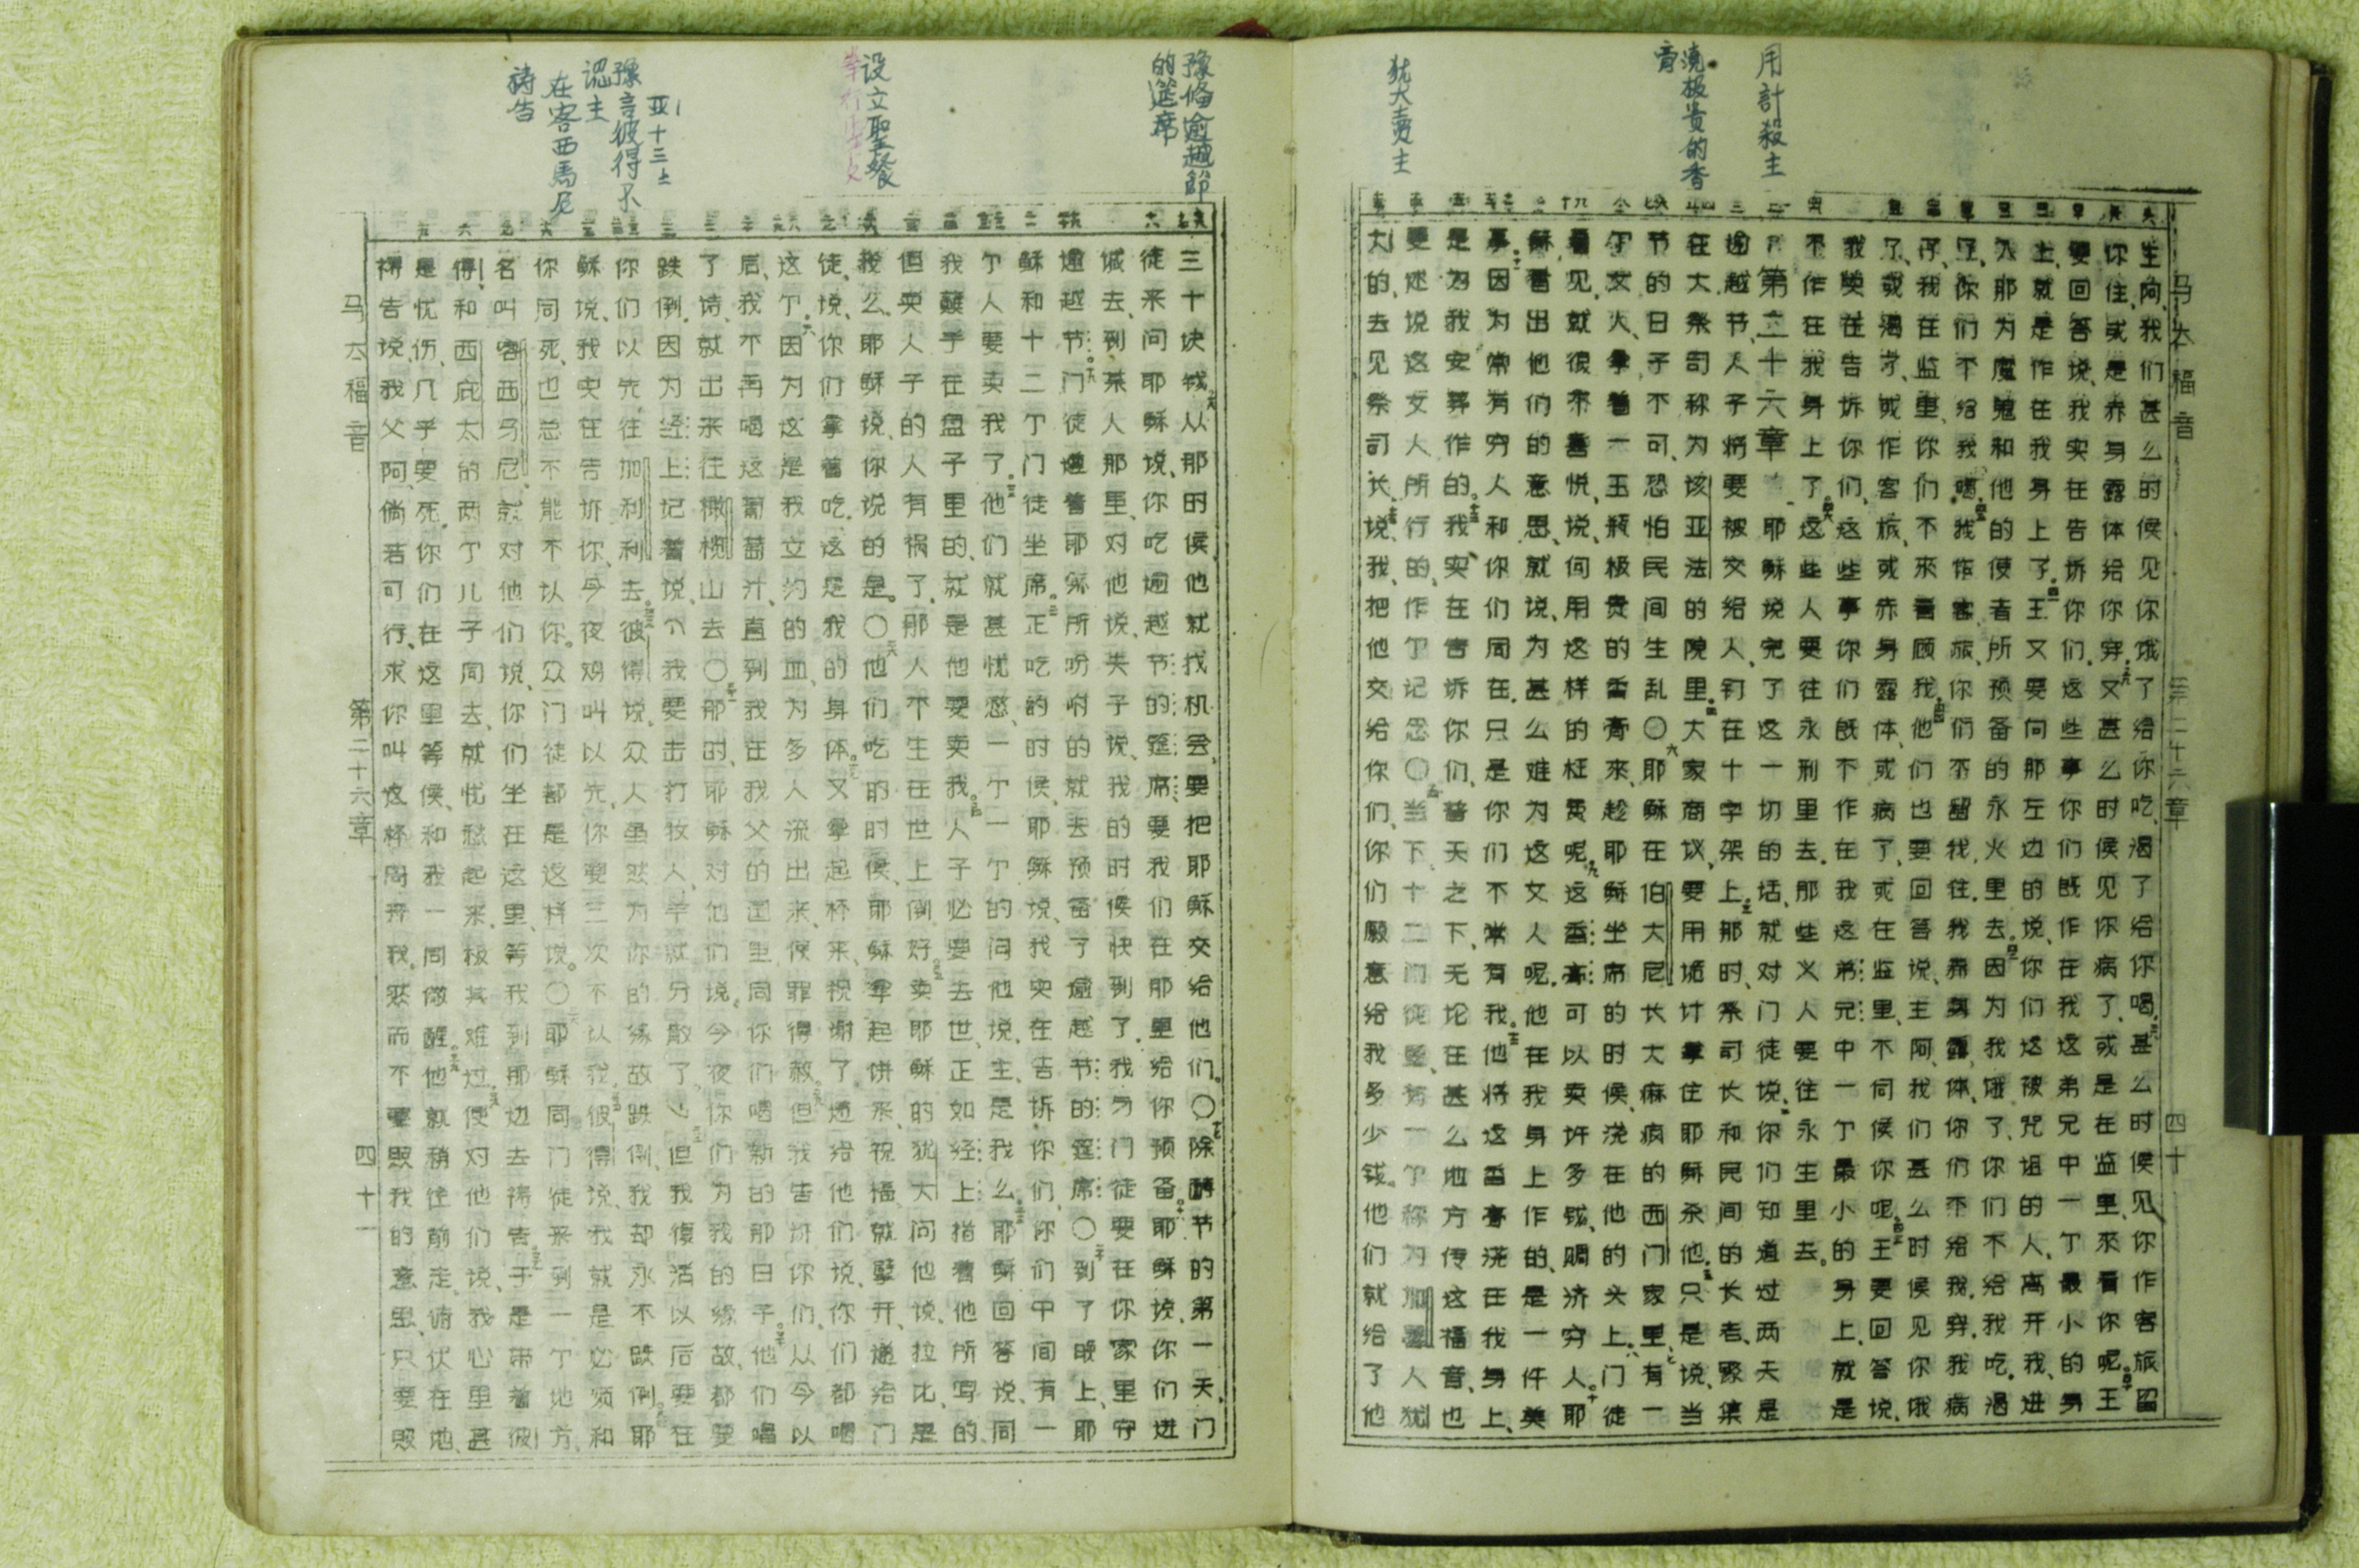 用計殺主
澆极贵的香膏
犹大賣主
马太福音
第二十六章
四十
主阿、我们甚么时候见你饿了给你吃、渴了给你喝、甚么时候见你作客旅留
你住、或是赤身露体给你穿、又甚么时候见你病了、或是在监里、來看你呢、王
要回答说、我实在告诉你们、这些事你们既作在我这弟兄中一个最小的身
上、就是作在我身上了。王又要向那左边的说、你们这被咒诅的人、离开我、进
入那为魔鬼和他的使者所预备的永火里去。因为我饿了、你们不给我吃、渴
了、你们不给我喝。我作客旅、你们不留我住、我赤身露体、你们不给我穿、我病
了、我在监里、你们不來看顾我。他们也要回答说、主阿、我们甚么时候见你饿
了、或渴了、或作客旅、或赤身露体、或病了、或在监里、不伺候你呢。王要回答说、
我实在告诉你们、这些事你们既不作在我这弟兄中一个最小的身上、就是
不作在我身上了。这些人要往永刑里去、那些义人要往永生里去。
第二十六章 耶稣说完了这一切的话、就对门徒说、你们知道过两天是
逾越节、人子将要被交给人、钉在十字架上。那时、祭司长和民间的长老、聚集
在大祭司称为该亚法的院里。大家商议、要用诡计拿住耶稣杀他。只是说、当
节的日子不可、恐怕民间生乱○耶稣在伯大尼长大麻疯的西门家里、有一
个女人、拿着一玉瓶极贵的香膏来、趁耶稣坐席的时候、浇在他的头上。门徒
看见、就很不喜悦、说、何用这样的枉费呢。这香膏可以卖许多钱、賙济穷人。耶
稣看出他们的意思、就说、为甚么难为这女人呢。他在我身上作的、是一件美
事、因为常有穷人和你们同在、只是你们不常有我。他将这香膏浇在我身上、
是为我安葬作的。我实在告诉你们、普天之下、无论在甚么地方传这福音、也
要述说这女人所行的、作个记念○当下十二门徒里、有一个称为加畧人犹
大的、去见祭司长、说、我把他交给你们、你们愿意给我多少钱。他们就给了他
豫俻逾越節的筵席
设立聖餐
亚十三
豫言彼得不認主
在客西馬尼祷告
三十块钱。从那时候、他就找机会、要把耶稣交给他们。○除酵节的第一天、门
徒来问耶稣说、你吃逾越节的筵席、要我们在那里给你预备。耶稣说、你们进
城去、到某人那里、对他说、夫子说、我的时候快到了、我与门徒要在你家里守
逾越节。门徒遵着耶稣所吩咐的、就去预备了逾越节的筵席○到了晚上、耶
稣和十二个门徒坐席。正吃的时候、耶稣说、我实在告诉你们、你们中间有一
个人要卖我了。他们就甚忧愁、一个一个的问他说、主、是我么。耶稣回答说、同
我蘸手在盘子里的、就是他要卖我。人子必要去世、正如经上指着他所写的、
但卖人子的人有祸了、那人不生在世上倒好。卖耶稣的犹大问他说、拉比、是
我么。耶稣说、你说的是。○他们吃的时候、耶稣拿起饼来、祝福、就擘开、递给门
徒、说、你们拿着吃、这是我的身体。又拿起杯来、祝谢了、递给他们、说、你们都喝
这个、因为这是我立约的血、为多人流出来、使罪得赦。但我告诉你们、从今以
后、我不再喝这葡萄汁、直到我在我父的国里、同你们喝新的那日子。他们唱
了诗、就出来往橄榄山去○那时、耶稣对他们说、今夜你们为我的缘故、都要
跌倒、因为经上记着说、我要击打牧人、羊就分散了。但我复活以后、要在
你们以先往加利利去。彼得说、众人虽然为你的缘故跌倒、我却永不跌倒。耶
稣说、我实在告诉你、今夜鸡叫以先、你要三次不认我。彼得说、我就是必须和
你同死、也总不能不认你。众门徒都是这样说。○耶稣同门徒来到一个地方、
名叫客西马尼、就对他们说、你们坐在这里、等我到那边去祷告。于是带着彼
得、和西庇太的两个儿子同去、就忧愁起来、极其难过、便对他们说、我心里甚
是忧伤、几乎要死、你们在这里等候、和我一同儆醒。他就稍往前走、俯伏在地、
祷告说、我父阿、倘若可行、求你叫这杯离开我。然而不要照我的意思、只要照
马太福音
第二十六章
四十一